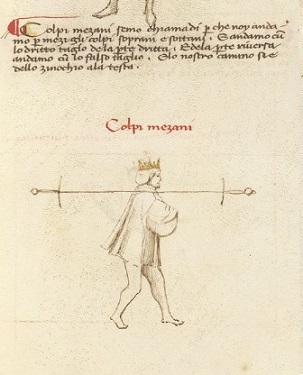 Colpi mezani semo chiamadi p che noy anda
mo p mezi gli colpi soprani e sottani. E andamo cū
lo dritto taglio de la pte dritta. E de la pte riversa
andamo cū lo falso taglio. E lo nostro camino si e
dello zinochio a la testa.
Colpi mezani